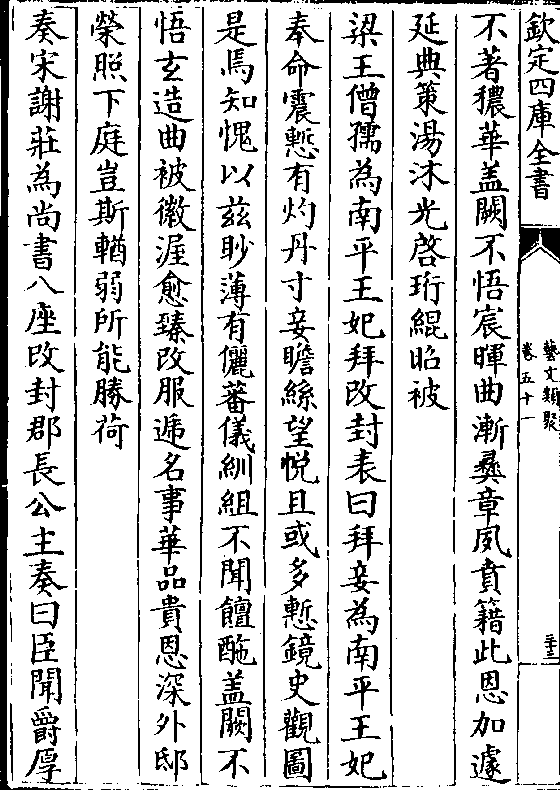 欽定四庫全書
藝文類聚
卷五十一
三十三
不著穠華盖闕不悟宸暉曲漸彝章夙賁籍此恩加遽
延典策湯沐光啓珩緄昭被
梁王僧孺為南平王妃拜改封表曰拜妾為南平王妃
奉命震慙有灼丹寸妾瞻絲望悦且或多慙鏡史觀圖
是焉知愧以兹眇薄有儷蕃儀紃組不聞饘酏盖闕不
悟玄造曲被徽渥愈臻改服遞名事華品貴恩深外邸
榮照下庭豈斯輶弱所能勝荷
奏宋謝莊為尚書八座改封郡長公主奏曰臣聞爵厚